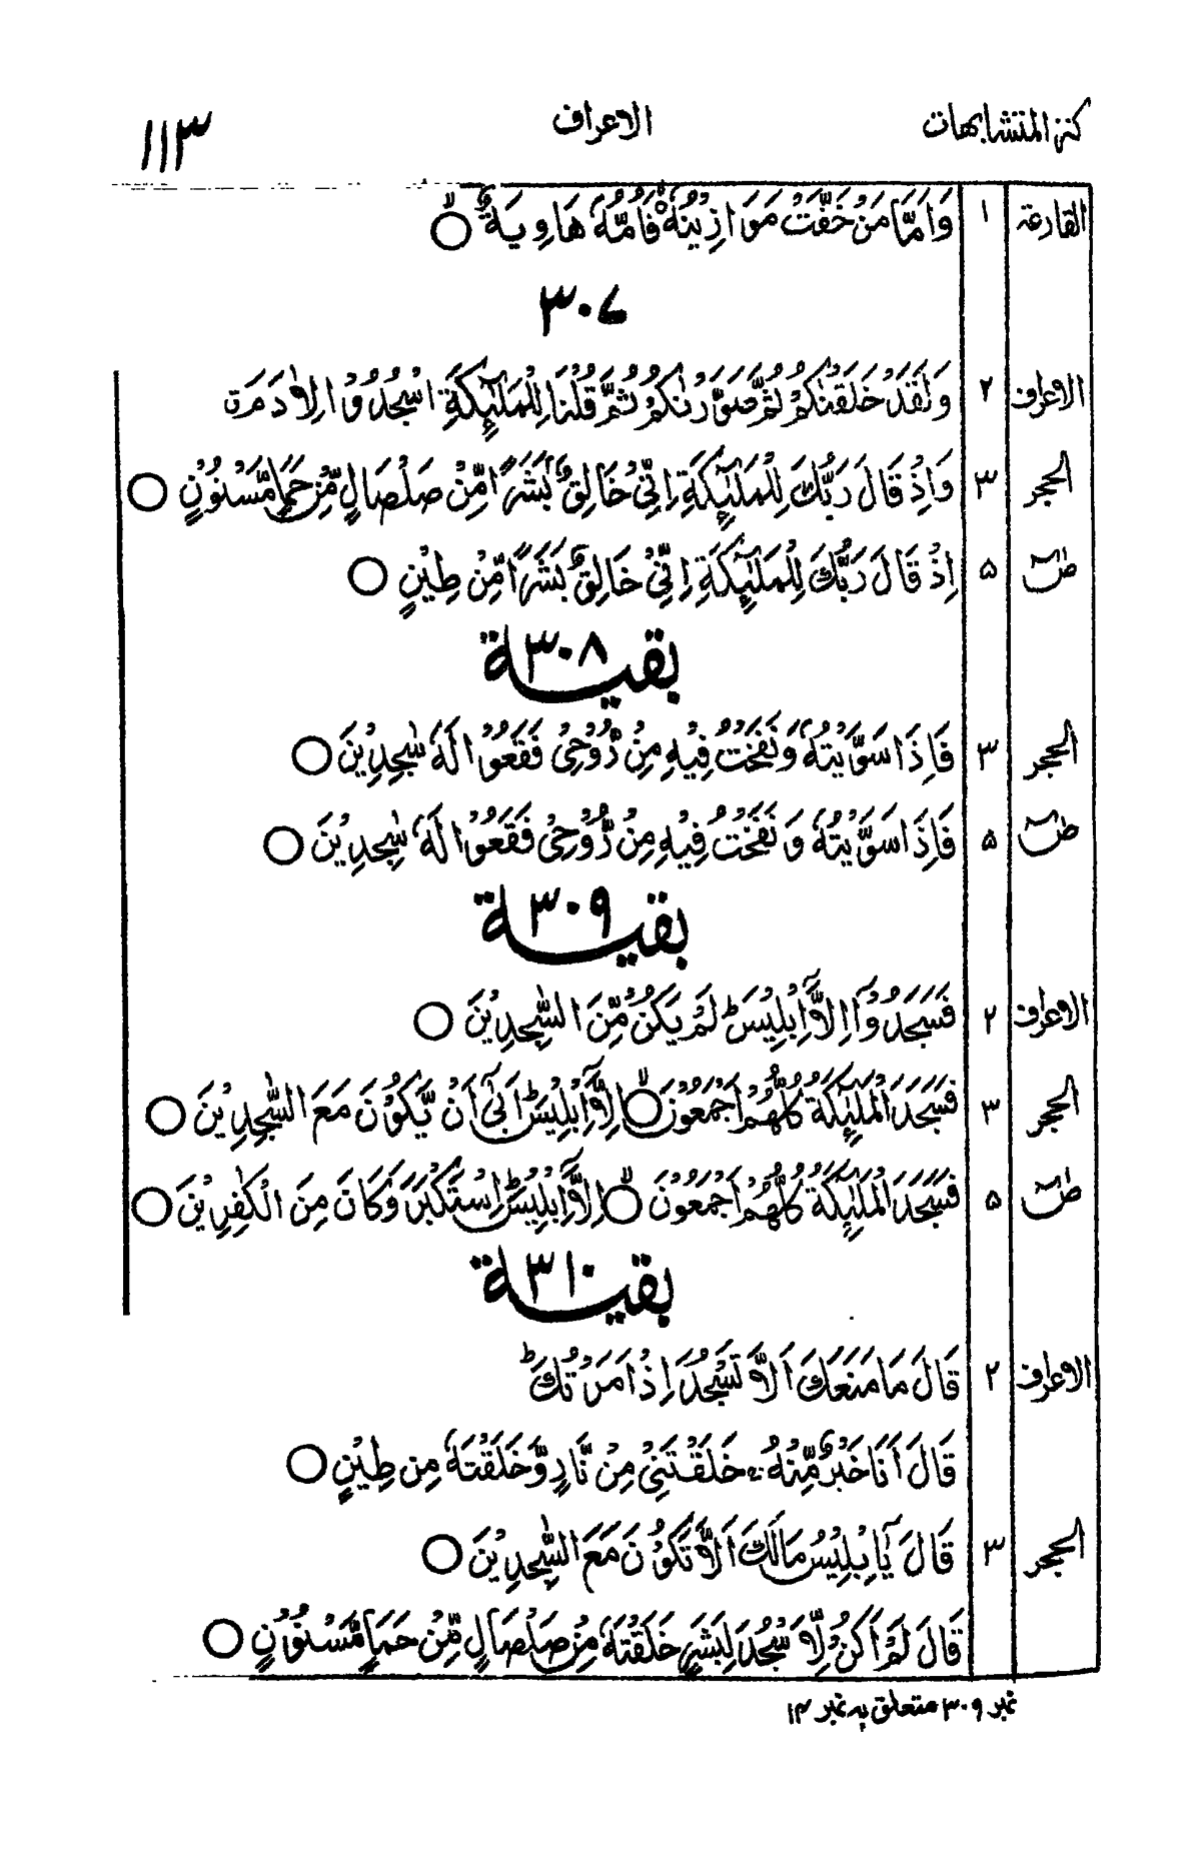 كنز المتشابهات الاعراف ١١٣
القارعة ١ وَاَمَّا مَنْ خَفَّتْ مَوَازِيْنُهٗ فَاُمُّهٗ هَاوِيَةٌ ○
٣٠٧
الاعراف ٢ وَلَقَدْ خَلَقْنٰكُمْ ثُمَّ صَوَّرْنٰكُمْ ثُمَّ قُلْنَا لِلْمَلٰٓئِكَةِ اسْجُدُوْا لِاٰدَمَ ق
الحجر ٣ وَاِذْ قَالَ رَبُّكَ لِلْمَلٰٓئِكَةِ اِنِّيْ خَالِقٌۢ بَشَرًا مِّنْ صَلْصَالٍ مِّنْ حَمَاٍ مَّسْنُوْنٍ ○
صٓ ۵ اِذْ قَالَ رَبُّكَ لِلْمَلٰٓئِكَةِ اِنِّيْ خَالِقٌۢ بَشَرًا مِّنْ طِيْنٍ ○
بقية ٣٠٨
الحجر ٣ فَاِذَا سَوَّيْتُهٗ وَنَفَخْتُ فِيْهِ مِنْ رُّوْحِيْ فَقَعُوْا لَهٗ سٰجِدِيْنَ ○
صٓ ۵ فَاِذَا سَوَّيْتُهٗ وَنَفَخْتُ فِيْهِ مِنْ رُّوْحِيْ فَقَعُوْا لَهٗ سٰجِدِيْنَ ○
بقية ٣٠٩
الاعراف ٢ فَسَجَدُوْٓا اِلَّآ اِبْلِيْسَ ؕ لَمْ يَكُنْ مِّنَ السّٰجِدِيْنَ ○
الحجر ٣ فَسَجَدَ الْمَلٰٓئِكَةُ كُلُّهُمْ اَجْمَعُوْنَ ○ اِلَّآ اِبْلِيْسَ ؕ اَبٰٓى اَنْ يَّكُوْنَ مَعَ السّٰجِدِيْنَ ○
صٓ ۵ فَسَجَدَ الْمَلٰٓئِكَةُ كُلُّهُمْ اَجْمَعُوْنَ ○ اِلَّآ اِبْلِيْسَ ؕ اِسْتَكْبَرَ وَكَانَ مِنَ الْكٰفِرِيْنَ ○
بقية ٣١٠
الاعراف ٢ قَالَ مَا مَنَعَكَ اَلَّا تَسْجُدَ اِذْ اَمَرْتُكَ ؕ
قَالَ اَنَا خَيْرٌ مِّنْهُ ۚ خَلَقْتَنِيْ مِنْ نَّارٍ وَّخَلَقْتَهٗ مِنْ طِيْنٍ ○
الحجر ٣ قَالَ يٰٓاِبْلِيْسُ مَا لَكَ اَلَّا تَكُوْنَ مَعَ السّٰجِدِيْنَ ○
قَالَ لَمْ اَكُنْ لِّاَسْجُدَ لِبَشَرٍ خَلَقْتَهٗ مِنْ صَلْصَالٍ مِّنْ حَمَاٍ مَّسْنُوْنٍ ○
نمبر ٣٠٩ متعلق بہ نمبر ١٣